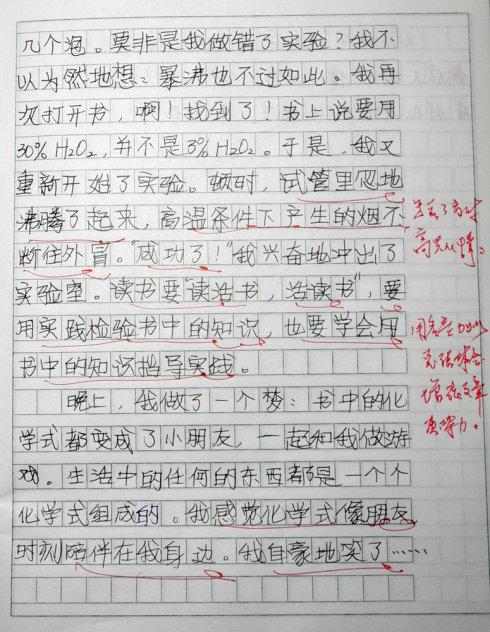 几个泡。莫非是我做错了实验？我不
以为然地想：暴沸也不过如此。我再
次打开书，啊！找到了！书上说要用
30% H₂O₂，并不是3% H₂O₂。于是，我又
重新开始了实验。顿时，试管里忽地
沸腾了起来，高温条件下产生的烟不
断往外冒。“成功了！”我兴奋地冲出了
实验室。读书要“读活书，活读书”，要
用实践检验书中的知识，也要学会用
书中的知识指导实践。
晚上，我做了一个梦：书中的化
学式都变成了小朋友，一起和我做游
戏。生活中的任何的东西都是一个个
化学式组成的。我感觉化学式像朋友
时刻陪伴在我身边。我自豪地笑了……
高兴心情。